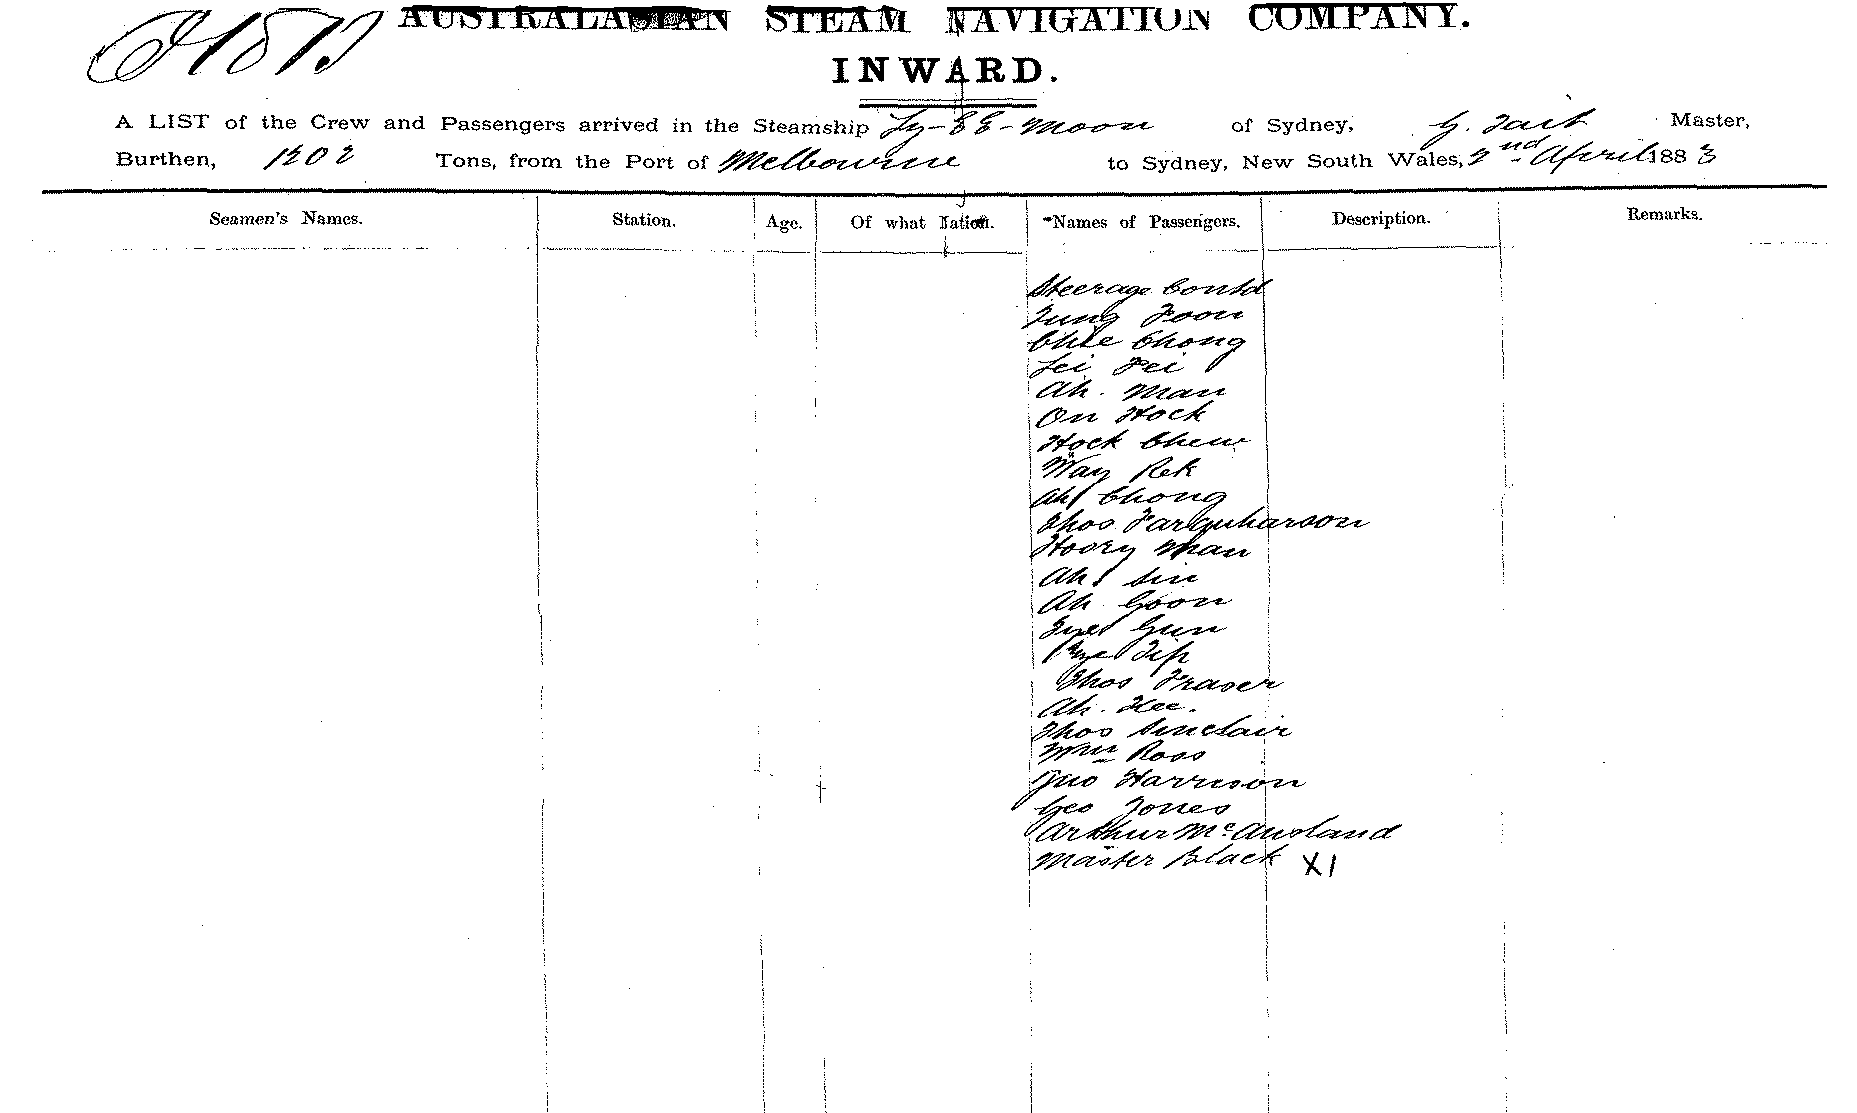 AUSTRALASIAN STEAM NAVIGATION COMPANY.
INWARD.
A LIST of the Crew and Passengers arrived in the Steamship Ly-EE-Moon of Sydney, G. Tait Master,
Burthen, 1202 Tons, from the Port of Melbourne to Sydney, New South Wales, 2nd April 1883
Seamen's Names. Station. Age. Of what Nation. Names of Passengers. Description. Remarks.
Steerage Contd
Fung Foon
Chee Chong
Lei Fei
Ah. Man
On Hock
Hock Chew
Way Rek
Ah Chong
Thos Farquharson
Man
Ah Sin
Ah Goon
Gun
Tip
Thos Fraser
Ah. Kee.
Thos Sinclair
Wm Ross
Jno Harrison
Geo Jones
Arthur McAusland
Master Black X1